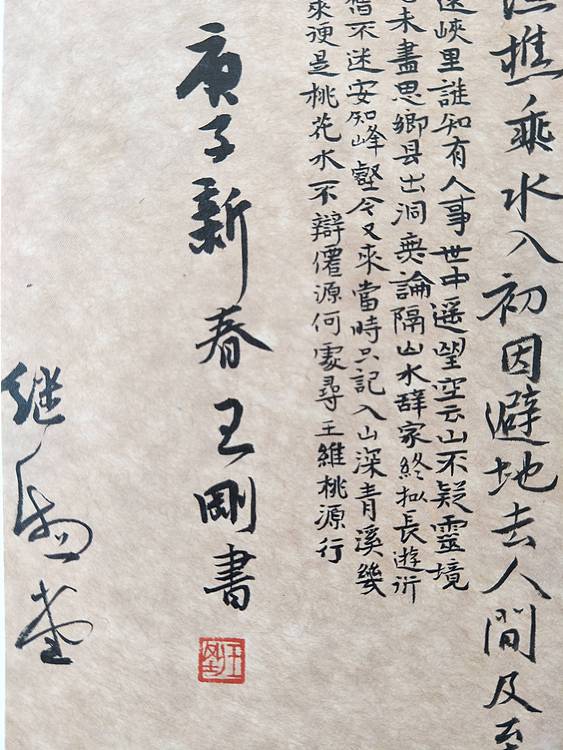 樵乘水入初因避地去人間及至
還峽里誰知有人事世中遥望空云山不疑靈境
未盡思鄉县出洞無論隔山水辞家終拟長遊衍
舊不迷安知峰壑今又來當時只記入山深青溪幾
來便是桃花水不辯僊源何處尋王維桃源行
庚子新春王剛書
继堂